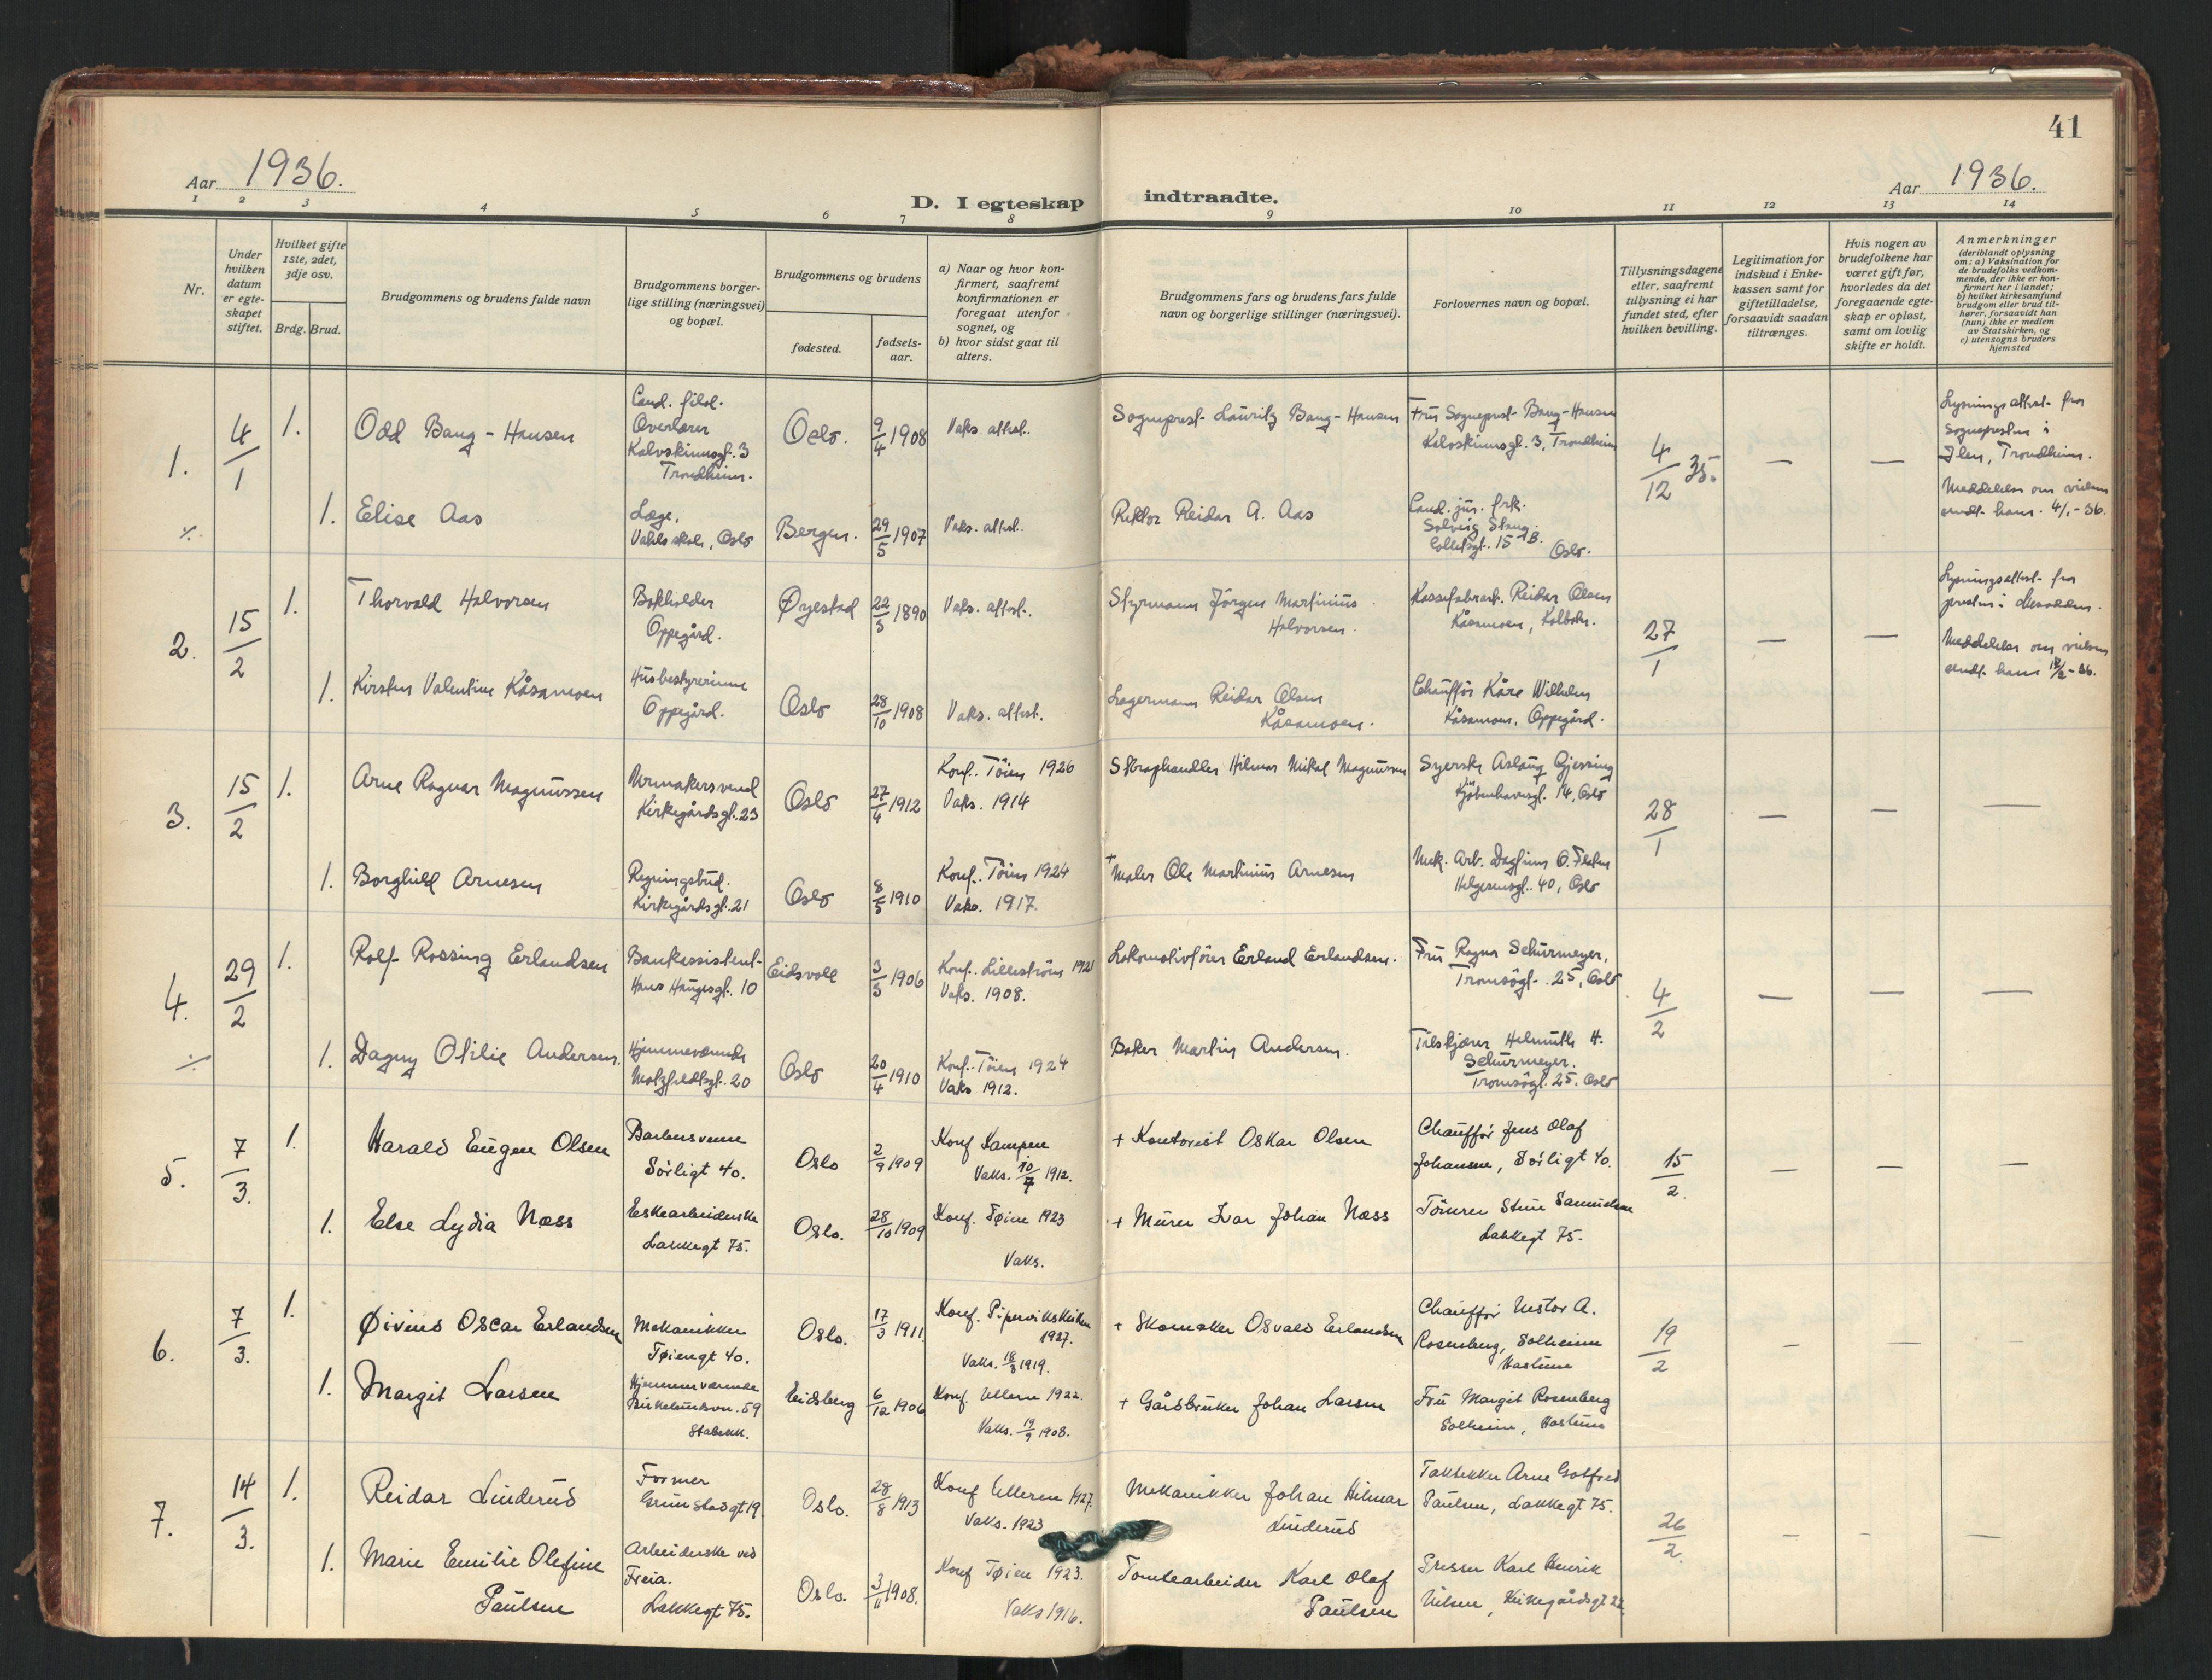 41
Aar 1936.
D. I egteskap indtraadte.
Aar 1936.
1 2 3 4 5 6 7 8 9 10 11 12 13 14
Nr.
Under hvilken datum er egteskapet stiftet.
Hvilket gifte 1ste, 2det, 3dje osv.
Brdg. Brud.
Brudgommens og brudens fulde navn
Brudgommens borgerlige stilling (næringsvei) og bopæl.
Brudgommens og brudens
fødested.
fødselsaar.
a) Naar og hvor konfirmert, saafremt konfirmationen er foregaat utenfor sognet, og
b) hvor sidst gaat til alters.
Brudgommens fars og brudens fars fulde navn og borgerlige stillinger (næringsvei).
Forlovernes navn og bopæl.
Tillysningsdagene eller, saafremt tillysning ei har fundet sted, efter hvilken bevilling.
Legitimation for indskud i Enkekassen samt for giftetilladelse, forsaavidt saadan tiltrænges.
Hvis nogen av brudefolkene har været gift før, hvorledes da det foregaaende egteskap er opløst, samt om lovlig skifte er holdt.
Anmerkninger
(deriblandt oplysning om: a) Vaksination for de brudefolks vedkommende, der ikke er konfirmert her i landet; b) hvilket kirkesamfund brudgom eller brud tilhører, forsaavidt han (hun) ikke er medlem av Statskirken, og c) utensogns bruders hjemsted
1. 4/1 1. Odd Bang-Hansen
Cand. filol.
Overlærer
Kalvskinnsgt. 3
Trondheim.
Oslo. 9/4 1908 Vaks. attest.
Sogneprest Lauritz Bang-Hansen
Fru Sogneprest Bang-Hansen
Kalvskinnsgt. 3, Trondheim
4/12 35. — —
Lysningsattest fra
Sognepresten i
Ilen, Trondheim.
Meddelelse om vielsen
sendt ham 4/1-36.
1. Elise Aas
Læge,
Vahls skole, Oslo
Bergen. 29/5 1907 Vaks. attest.
Rektor Reidar A. Aas
Cand. jur. frk.
Solveig Stang.
Colletsgt. 15 B.
Oslo.
2. 15/2 1. Thorvald Halvorsen
Bokholder
Oppegård.
Øyestad 22/5 1890 Vaks. attest.
Styrmann Jörgen Martinius
Halvorsen.
Kassefabrarb. Reidar Olsen
Kåsamoen, Kolbotn.
27/1 — —
Lysningsattest fra
presten i
Meddelelse om vielsen
sendt ham -36.
1. Kirsten Valentine Kåsamoen
Husbestyrerinne
Oppegård.
Oslo 28/10 1908 Vaks. attest.
Lagermann Reidar Olsen
Kåsamoen.
Chauffør Kåre Wilhelm
Kåsamoen, Oppegård.
3. 15/2 1. Arne Ragnar Magnussen
Urmakersvend
Kirkegårdsgt. 23
Oslo 27/4 1912
Konf. Töien 1926
Vaks. 1914
Skraphandler Hilmar Mikal Magnussen
Syerske Aslaug Gjessing
Kjöbenhavnsgt. 14, Oslo
28/1 — — —
1. Borghild Arnesen
Regningsbud.
Kirkegårdsgt. 21
Oslo 8/5 1910
Konf. Töien 1924
Vaks. 1917.
+ Maler Ole Martinius Arnesen
Mek. Arb. Dagfinn O. Flaten
Helgesensgt. 40, Oslo
4. 29/2 1. Rolf Rossing Erlandsen
Bankassistent
Hans Haugesgt. 10
Eidsvoll 3/5 1906
Konf. Lilleström 1921
Vaks. 1908.
Lokomotivfører Erland Erlandsen.
Fru Ragna Schürmeyer,
Tromsögt. 25, Oslo
4/2 — — —
1. Dagny Otilie Andersen.
Hjemmeværende
Motzfeldtsgt. 20
Oslo 20/4 1910
Konf. Töien 1924
Vaks 1912.
Baker Martin Andersen.
Tilskjærer Helmuth H.
Schürmeyer.
Tromsögt. 25. Oslo
5. 7/3. 1. Harald Eugen Olsen
Barbersvenn
Sörligt 40.
Oslo 2/9 1909
Konf Kampen
Vaks. 10/7 1912.
+ Kontorist Oskar Olsen
Chauffør Jens Olaf
Johansen, Sörligt 40.
15/2. — — —
1. Else Lydia Næss
Eskearbeiderske
Lakkegt 75.
Oslo. 28/10 1909
Konf. Tøien 1923
Vaks.
+ Murer Ivar Johan Næss
Tömrer Sture Samuelsen
Lakkegt 75.
6. 7/3. 1. Øivind Oscar Erlandsen
Mekanikker
Tøiengt 40.
Oslo. 17/3 1911.
Konf. Piperviks kirken
1927.
Vaks. 18/3 1919.
+ Skomaker Osvald Erlandsen
Chauffør Nestor A.
Rosenberg, Solheim
Haslum
19/2 — — —
1. Margit Larsen
Hjemmeværende
Birkelundsvn. 59
Stabekk.
Eidsberg 6/12 1906
Konf. Ullern 1922.
Vaks. 19/9 1908.
+ Gårdbruker Johan Larsen
Fru Margit Rosenberg
Solheim, Haslum
7. 14/3. 1. Reidar Linderud
Former
Grimstadgt 19.
Oslo. 28/8 1913
Konf Ulleren 1927.
Vaks. 1923
Mekanikker Johan Hilmar
Linderud
Taktekker Arne Gotfred
Paulsen, Lakkegt 75.
26/2. — — —
1. Marie Emilie Olefine
Paulsen
Arbeiderske ved
Freia.
Lakkegt 75.
Oslo. 3/11 1908.
Konf Tøien 1923.
Vaks 1916.
Tomtearbeider Karl Olaf
Paulsen
Presser Karl Henrik
Nilsen, Kirkegårdsgt 22.